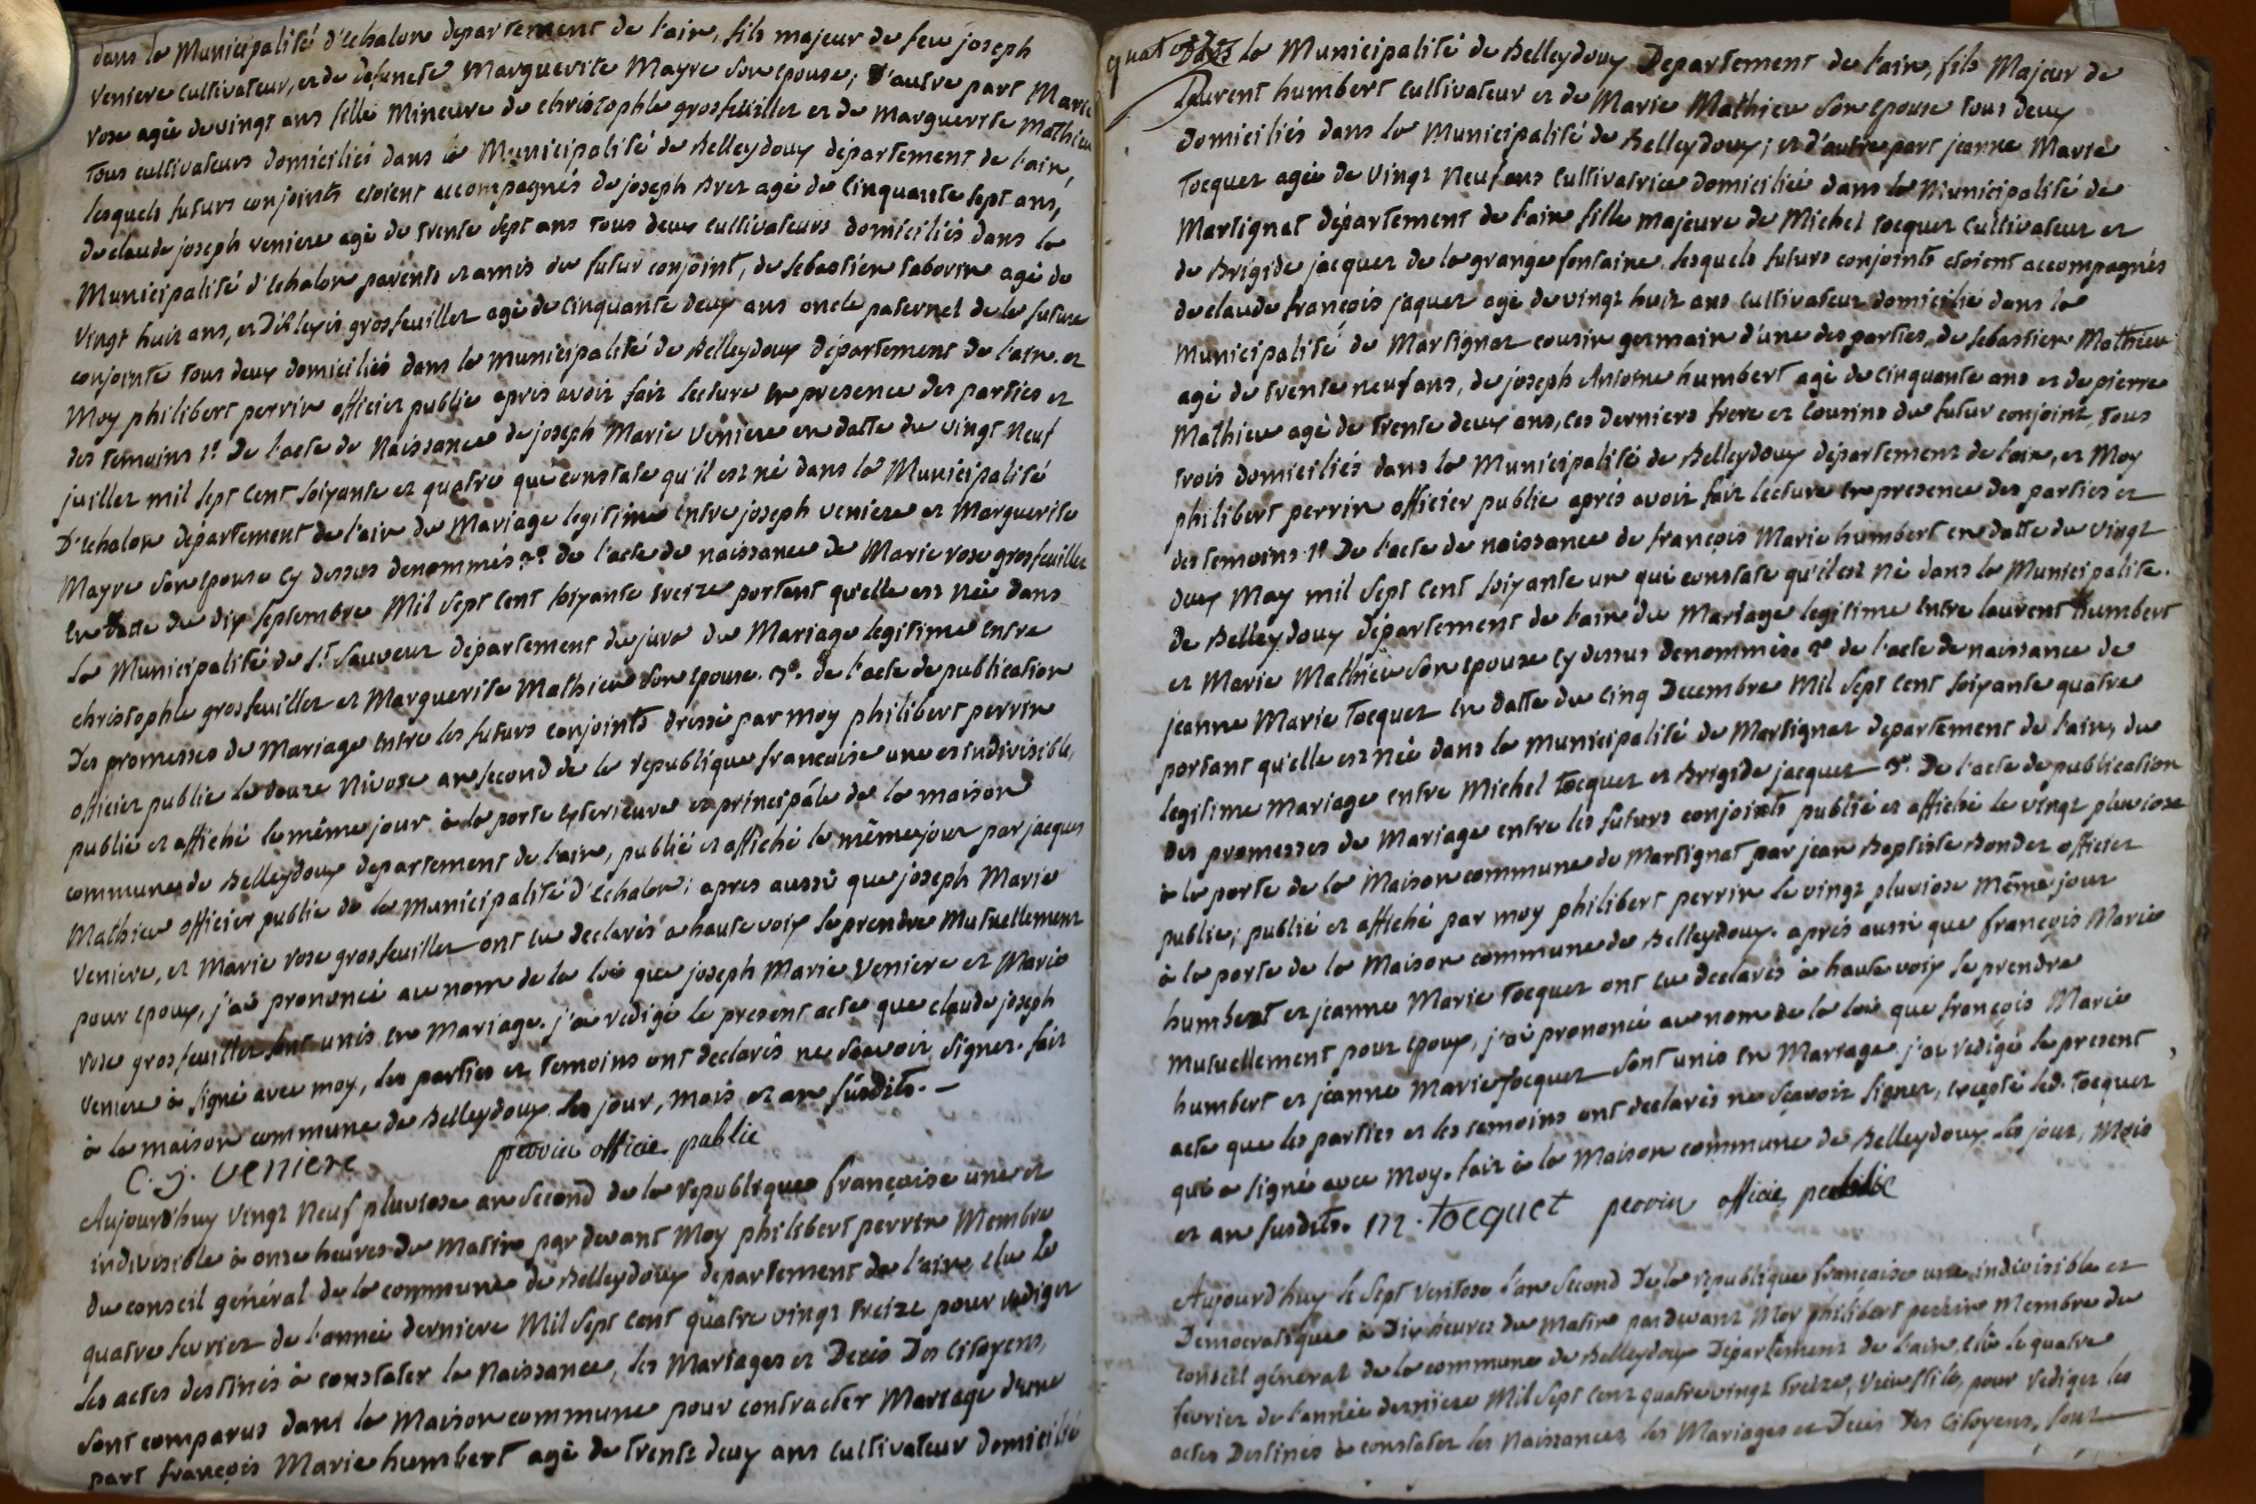 dans la Municipalité d'Echalon departement de l'ain, fils majeur de feu joseph
veniere cultivateur, et de defuncte Marguerite Mayre son epouse; D'autre part Marie
rose agèe de vingt ans fille Mineure de christophle grosfeuillet et de Marguerite Mathieu
tous cultivateurs domiciliés dans la Municipalité de Belleydoux département de l'ain,
lesquels futurs conjoints etoient accompagnés de joseph Brez agè de Cinquante sept ans,
de claude joseph veniere agè de trente sept ans tous deux cultivateurs domiciliés dans la
Municipalité d'Echalon parents et amis du futur conjoint, de sebastien taborin agè de
Vingt huit ans, et D'Alexis grosfeuillet agè de Cinquante deux ans oncle paternel de la future
conjointe tous deux domiciliés dans la Municipalité de Belleydoux département de l'ain. et
Moy philibert perrin officier public apris avoir fait lecture en presence des parties et
des temoins 1º De l'acte de Naissance de joseph Marie Veniere en datte du vingt Neuf
juillet mil sept Cent soixante et quatre qui constate qu'il est nè dans la Municipalité
D'Echalon département de l'ain du Mariage legitime entre joseph veniere et Marguerite
Mayre son epouse cy dessus denommés 2º de l'acte de naissance de Marie rose grosfeuillet
en datte du dix septembre Mil sept Cent soixante treize portant qu'elle est née dans
la Municipalité de St sauveur département du jura du Mariage legitime entre
christophle grosfeuillet et Marguerite Mathieu son epouse. 3º. de l'acte de publication
Des promesses de Mariage entre les futurs conjoints dressé par moy philibert perrin
officier public le douze Nivose an second de la republique francaise une et indivisible,
publié et affiché le même jour à la porte Exterieure et principale de la maison
commune de Belleydoux departement de l'ain, publié et affiché le même jour par jacques
Mathieu officier public de la Municipalité d'Echalon; apres aussi que joseph Marie
Veniere, et Marie rose grosfeuillet ont eu declarés à haute voix se prendre Mutuellement
pour epoux, j'ai prononcé au nom de la loi que joseph Marie Veniere et Marie
rose grosfeuillet sont unis en Mariage. j'ai redigé le present acte que claude joseph
Veniere à signé avec moy, les parties et temoins ont declarés ne sçavoir signer. fait
à la maison commune de Belleydoux les jour, mois et an susdits. -
C. j. veniere perrin officie public
Aujourd'huy Vingt Neuf pluviose an Second de la republique française une et
indivisible à onze heures du Matin par devant Moy philibert perrin Membre
du conseil général de la commune de Belleydoux departement de l'ain élu le
quatre fevrier de l'année derniere Mil Sept Cent quatre vingt treize pour rediger
les actes destinés à constater la Naissance, les Mariages et Decés Des Citoyens,
sont comparus dans la Maison commune pour contracter Mariage d'une
part françois Marie humbert agè de trente deux ans cultivateur domicilié
quatorze
Dans la Municipalité de Belleydoux Departement de l'ain, fils Majeur de
Laurent humbert cultivateur et de Marie Mathieu son epouse tous deux
domiciliés dans la Municipalité de Belleydoux; et d'autre part jeanne Marie
Tocquet agèe de Vingt Neuf ans Cultivatrice domiciliée dans la Municipalité de
Martignat département de l'ain fille majeure de Michel tocquet Cultivateur et
de Brigide jacquet de la grange fontaine. lesquels futurs conjoints etoient accompagnés
de claude françois jaquet agè de vingt huit ans cultivateur domicilié dans la
Municipalité de Martignat cousin germain d'une des parties, de sebastien Mathieu
agè de trente neuf ans, de joseph Antoine humbert agè de cinquante ans et de pierre
Mathieu agè de trente deux ans, ces derniers frere et Cousins du futur conjoint, tous
trois domiciliés dans la Municipalité de Belleydoux département de l'ain, et Moy
philibert perrin officier public aprés avoir fait lecture en presence des parties et
des temoins 1º De l'acte de naissance de françois Marie humbert en datte du vingt
deux May mil sept Cent soixante un qui constate qu'il est né dans la Municipalité.
de Belleydoux département de l'ain du Mariage legitime Entre laurent humbert
et Marie Mathieu son epouse cy dessus denommés. 2º de l'acte de naissance de
jeanne Marie Tocquet en datte du Cinq Decembre Mil Sept Cent soixante quatre
portant qu'elle est née dans la municipalité de Martignat departement de l'ain, du
legitime Mariage entre Michel tocquet et Brigide jacquet 3º. De l'acte de publication
Des promesses de Mariage entre les futurs conjoints publié et affiché le vingt pluviose
à la porte de la Maison commune de Martignat par jean Baptiste Bondet officier
public; publié et affiché par moy philibert perrin le vingt pluviose même jour
à la porte de la Maison commune de Belleydoux. aprés aussi que françois Marie
humbert et jeanne Marie tocquet ont eu declarés à haute voix se prendre
mutuellement pour epoux, j'ai prononcé au nom de la loi que françois Marie
humbert et jeanne Marie Tocquet sont unis en Mariage j'ai redigé le present
acte que les parties et les temoins ont declarés ne sçavoir signer, excepté led. Tocquet
qui a signé avec moy. fait à la Maison commune de Belleydoux les jour, Mois
et an susdits. M. Tocquet perrin officie public
Aujourd'huy le Sept Ventose l'an Second De la republique francaise une indivisible et
Democratique à Dix heures du Matin pardevant Moy philibert perrin Membre du
conseil général de la commune de Belleydoux Département de l'ain, élu le quatre
fevrier de l'année derniere Mil Sept Cent quatre vingt treize, vieu stile, pour rediger les
actes Destinés à constater les Naissances, les Mariages et Decés Des Citoyens, sont